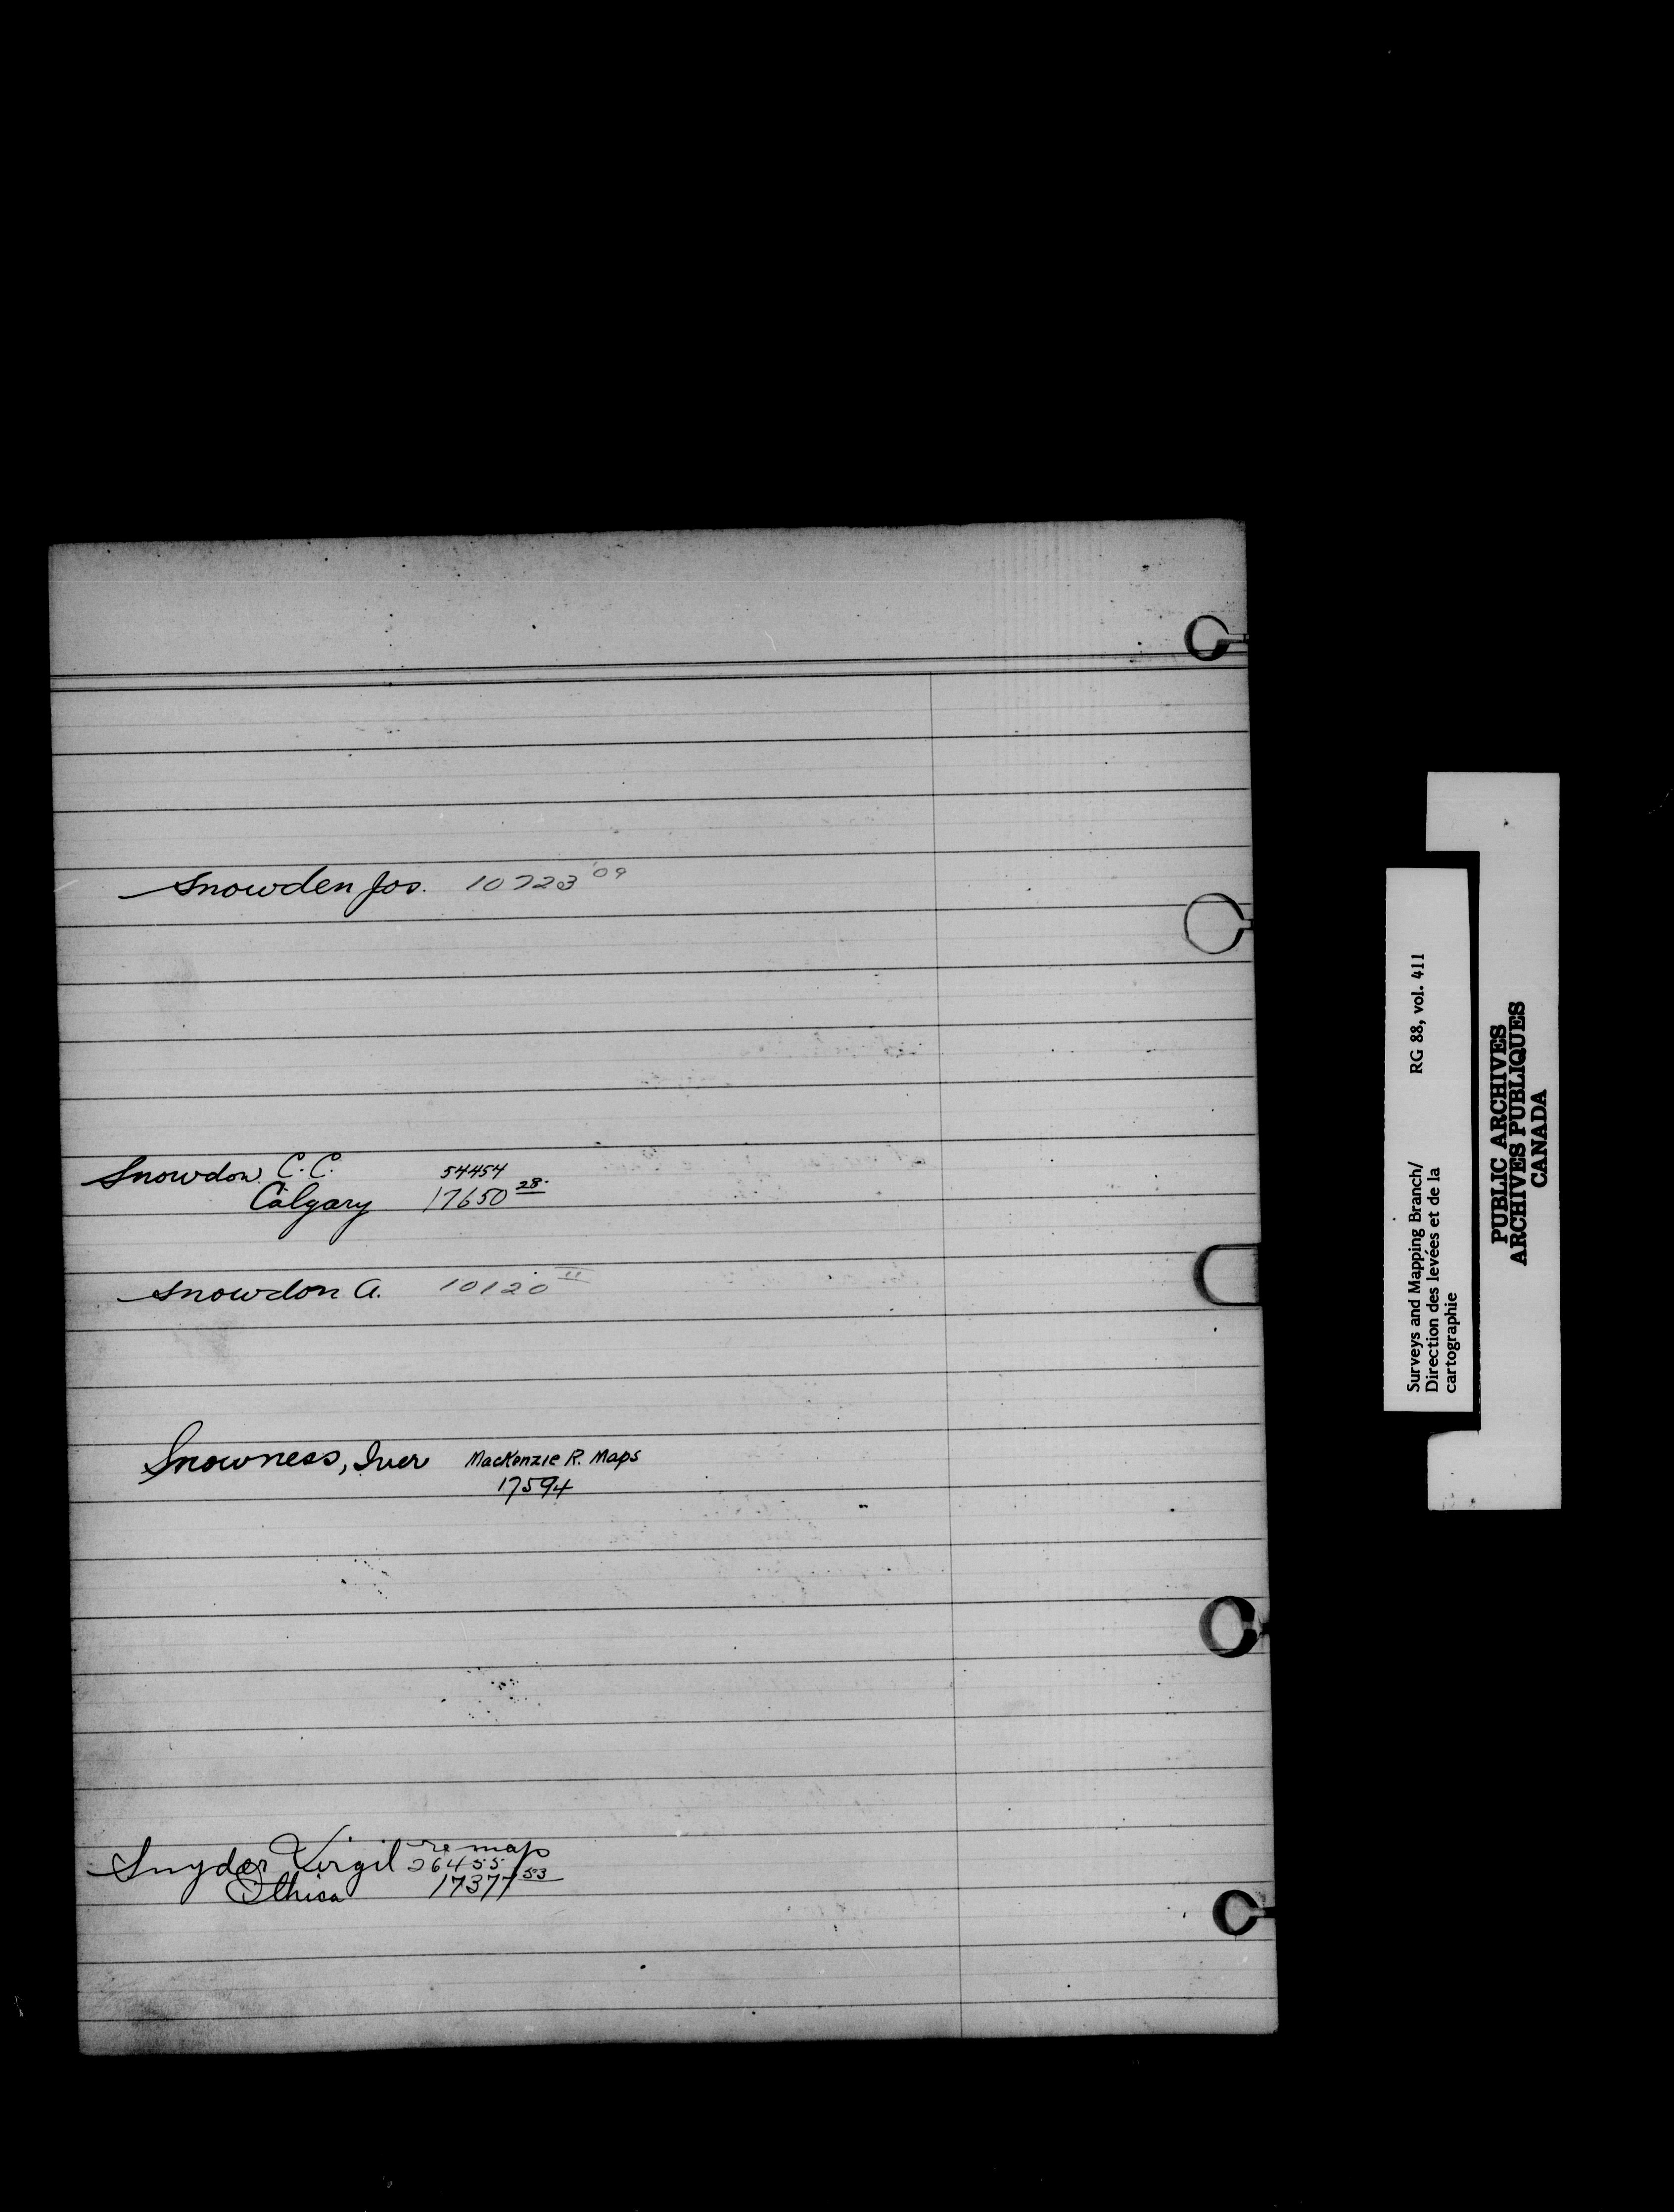 Snowden Jos. 10723 '09
Snowdon C. C. 54454
Calgary 17650 28.
Snowdon A. 10120 11
Snowness, Iver MacKenzie R. Maps
17594
Snyder Virgil re map
26455
Ithica 17377 53
Surveys and Mapping Branch/ RG 88, vol. 411
Direction des levées et de la
cartographie
PUBLIC ARCHIVES
ARCHIVES PUBLIQUES
CANADA